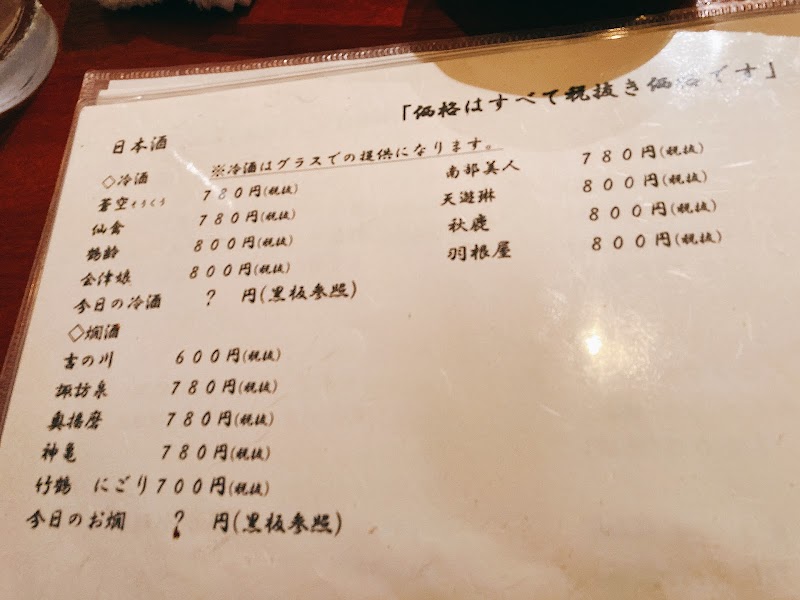 「価格はすべて税抜き価格です」
日本酒
※冷酒はグラスでの提供になります。
◇冷酒
蒼空そうくう 780円(税抜)
仙禽 780円(税抜)
鶴齢 800円(税抜)
会津娘 800円(税抜)
今日の冷酒 ? 円(黒板参照)
南部美人 780円(税抜)
天遊琳 800円(税抜)
秋鹿 800円(税抜)
羽根屋 800円(税抜)
◇燗酒
吉の川 600円(税抜)
諏訪泉 780円(税抜)
奥播磨 780円(税抜)
神亀 780円(税抜)
竹鶴 にごり700円(税抜)
今日のお燗 ? 円(黒板参照)